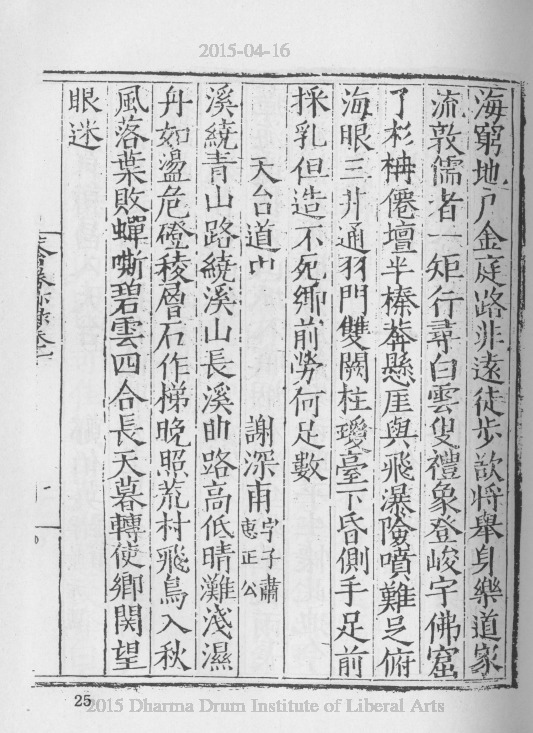 2015-04-16
海窮地户金庭路非遠徒步欲將舉身樂道家
流敦儒者一矩行尋白雲叟禮象登峻宇佛窟
了杉栴僊壇半榛莽懸厓與飛瀑險噴難足俯
海眼三井通羽門雙闕柱瓊臺下昏側手足前
採乳但造不死鄉前勞何足數
天台道中 謝深甫 字子肅 惠正公
溪繞青山路繞溪山長溪曲路高低晴灘淺濕
舟如盪危磴稜層石作梯晚照荒村飛鳥入秋
風落葉敗蟬嘶碧雲四合長天暮轉使鄉関望
眼迷
25
2015 Dharma Drum Institute of Liberal Arts